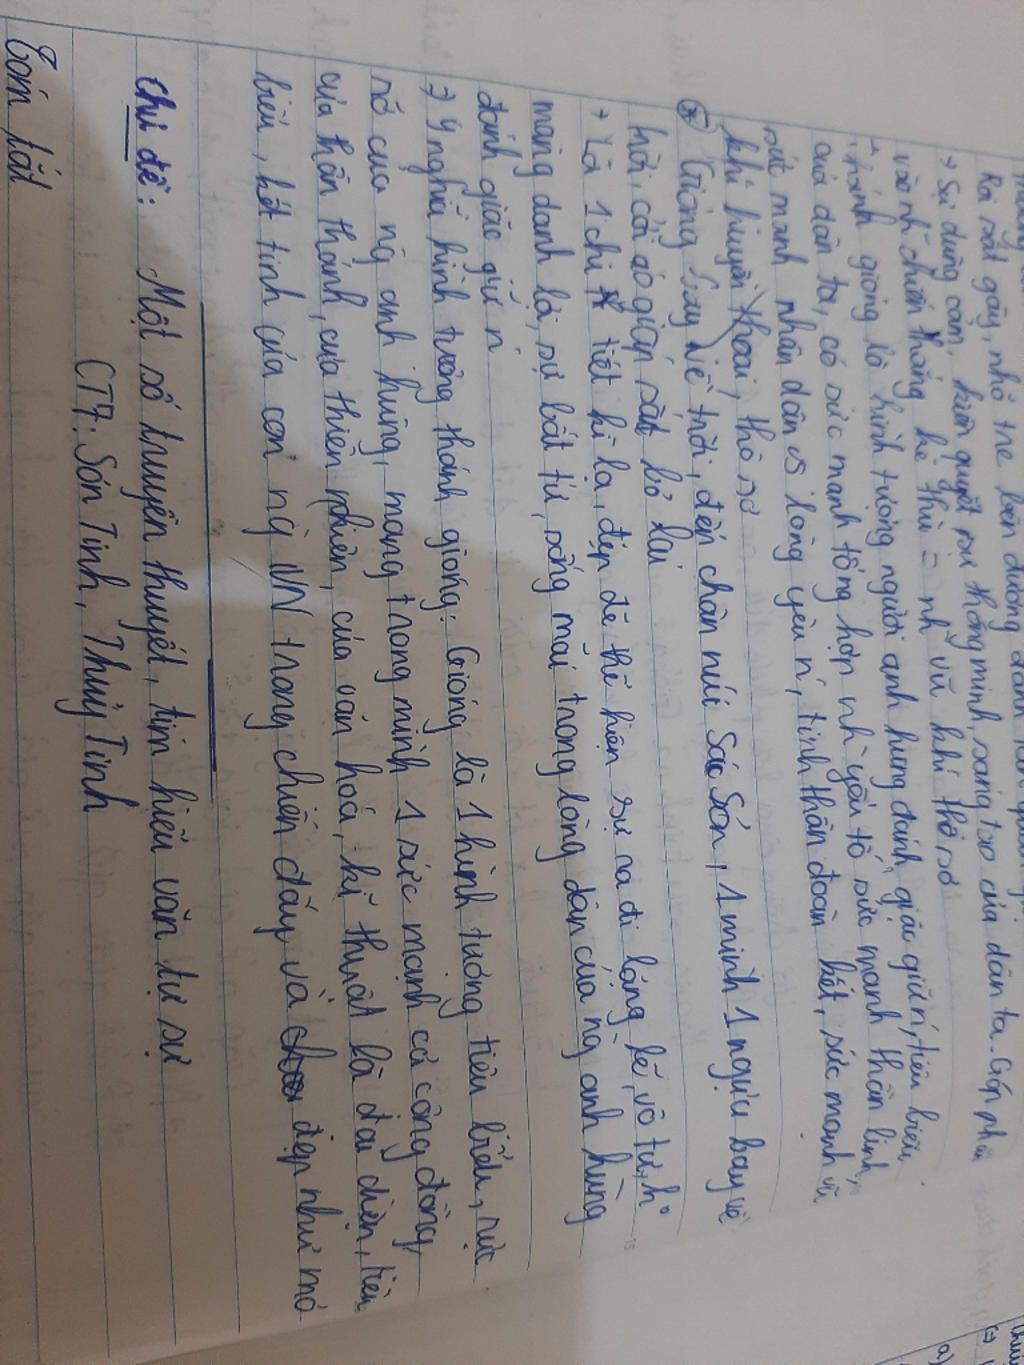 Roi sắt gãy, nhổ tre bên đường đánh
→ Sự dũng cảm, kiên quyết mà thông minh, sáng tạo của dân ta. Góp phần
vào nh~ chiến thắng kẻ thù = nh~ vũ khí thô sơ
→ thánh gióng là hình tượng người anh hùng đánh giặc giữ n', tiêu biểu
của dân ta, có sức mạnh tổng hợp nh~ yếu tố sức mạnh thần linh,
sức mạnh nhân dân vs lòng yêu n', tinh thần đoàn kết, sức mạnh vũ
khí huyền thoại, thô sơ
* Gióng bay về trời, đến chân núi Sóc Sơn, 1 mình 1 ngựa bay về
trời, cởi áo giáp sắt bỏ lại
→ Là 1 chi tiết kì lạ, đẹp đẽ thể hiện sự ra đi lặng lẽ, vô tư, h°
màng danh lợi, sự bất tử, sống mãi trong lòng dân của ng anh hùng
đánh giặc giữ n'
⇒ Ý nghĩa hình tượng thánh gióng: Gióng là 1 hình tượng tiêu biểu, rực
rỡ của ng anh hùng, mang trong mình 1 sức mạnh cả cộng đồng,
của thần thánh, của thiên nhiên, của văn hoá, kĩ thuật là đại diện, tiêu
biểu, kết tinh của con ng VN trong chiến đấu và đẹp như mơ
Chủ đề: Một số truyền thuyết, tìm hiểu văn tự sự
CT7: Sơn Tinh, Thủy Tinh
Tóm tắt